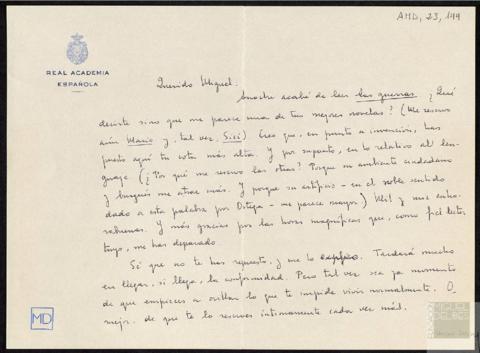 AMD, 23, 144
REAL ACADEMIA
ESPAÑOLA
Querido Miguel:
Anoche acabé de leer las guerras. ¿Qué
decirte sino que me parece una de tus mejores novelas? (Me reservo
aún Mario y, tal vez, Sisí) Creo que, en punto a invención, has
puesto aquí tu cota más alta. Y por supuesto, en lo relativo al len-
guaje (¿Por qué me reservo las otras? Porque su ambiente ciudadano
y burgués me atrae más. Y porque su artificio - en el noble sentido
dado a esta palabra por Ortega - me parece mayor.) Mil y mil enho-
rabuenas. Y más gracias por las horas magníficas que, como fiel lector
tuyo, me has deparado.
Sé que no te has repuesto, y me lo explico. Tardará mucho
en llegar, si llega, la conformidad. Pero tal vez sea ya momento
de que empieces a orillar lo que te impide vivir normalmente. O,
mejor, de que te lo reserves íntimamente cada vez más.
MD
MIGUEL
DELIBES